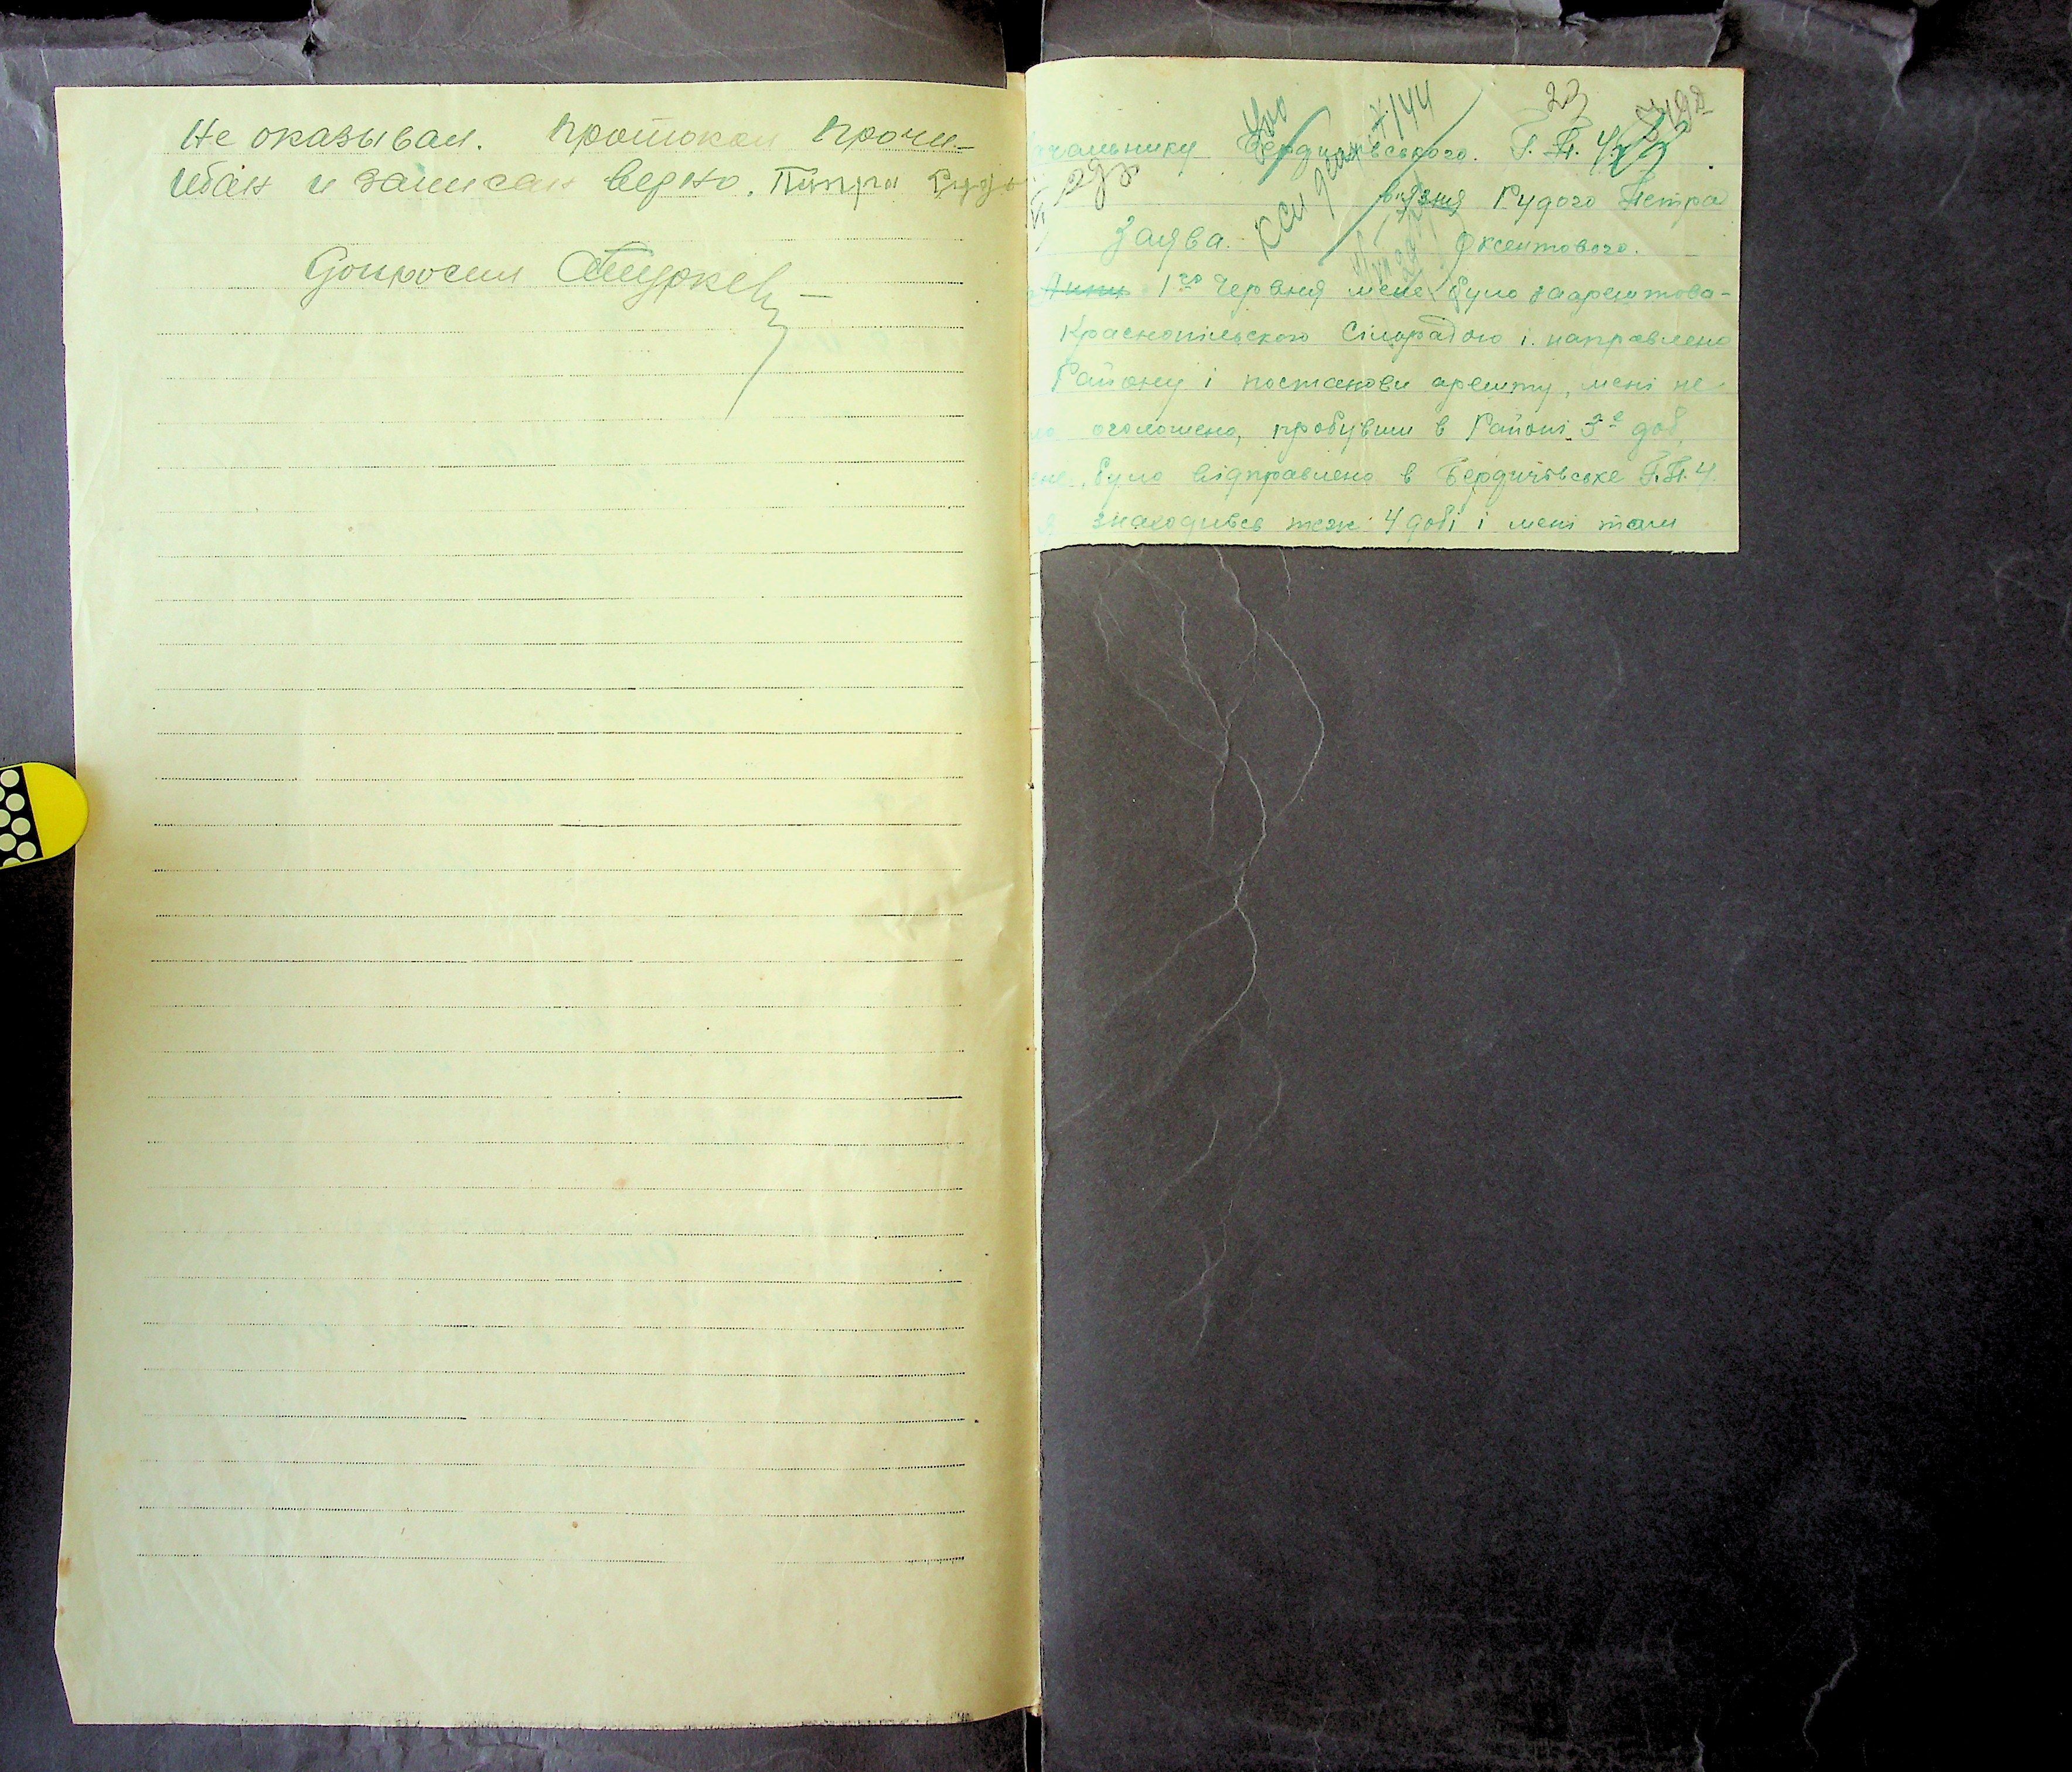 Не оказывал. Протокол прочи-
тан и записан верно. Петро Рудь
Допросил
23
чальнику Бердичівського. Г. П. У.
вязня Рудого Петра
Заява. Оксентового.
1го Червня мене було заарештова-
Краснопільською Сільрадою і направлено
Району і постанови арешту, мені не
оголошено, пробувши в Районі 3е доб
було відправлено в Бердичівське Г.П.У.
знаходивсь теж 4 добі і мені там